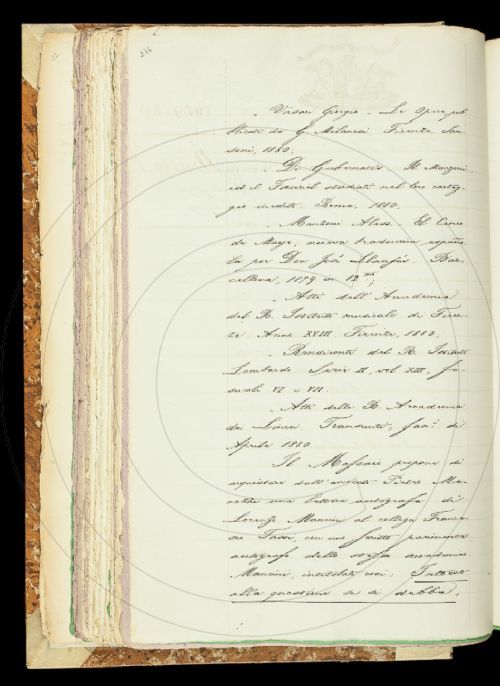 244
„ Vasari Giorgio – Le Opere pub
blicate da G. Milanesi. Firenze, San
soni, 1880.
„ De Gubernatis – Il Manzoni
ed il Fauriel studiati nel loro carteg-
gio inedito. Roma, 1880.
„ Manzoni Aless. – El Cinco
de Mayo, nueva traduccion españo
la por Don José Llausás. Bar
cellona, 1879 in 12.mo
„ Atti dell'Accademia
del R. Istituto musicale di Firen
ze. Anno XVIII. Firenze, 1880.
„ Rendiconti del R. Istituto
Lombardo Serie II, vol. XIII, fa-
scicoli VI e VII.
„ Atti della R. Accademia
dei Lincei. Transunti, fasc.
Aprile 1880.
Il Massari propone di
acquistare dall'
una lettera autografa di
Lorenzo Mancini al collega France
sco Tassi, con uno scritto parimente
autografo dello stesso accademico
Mancini, intitolato così: Intorno
alla questione se si debba,